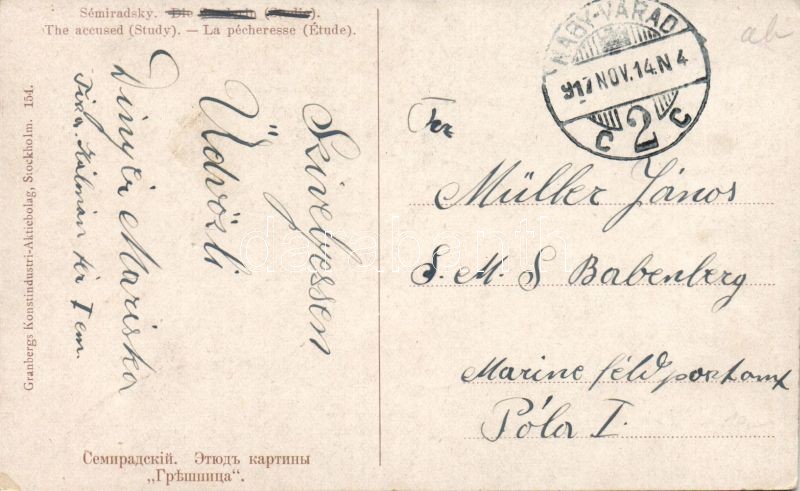 Sémiradsky. Die (Studie).
The accused (Study). — La pécheresse (Étude).
Granbergs Konstindustri-Aktiebolag, Stockholm. 154.
Szivelyessen
Üdvözli
Mariska
Kálmán tér I em.
Семирадскій. Этюдъ картины
„Грѣшница“.
NAGY-VÁRAD
917 NOV. 14. N 4
C 2 C
Müller János
S. M. S Babenberg
Marine féldpostamt
Póla I.